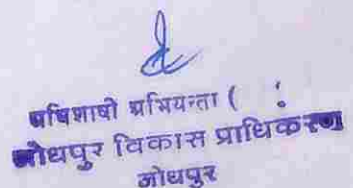 अधिशाषी अभियन्ता (
जोधपुर विकास प्राधिकरण
जोधपुर